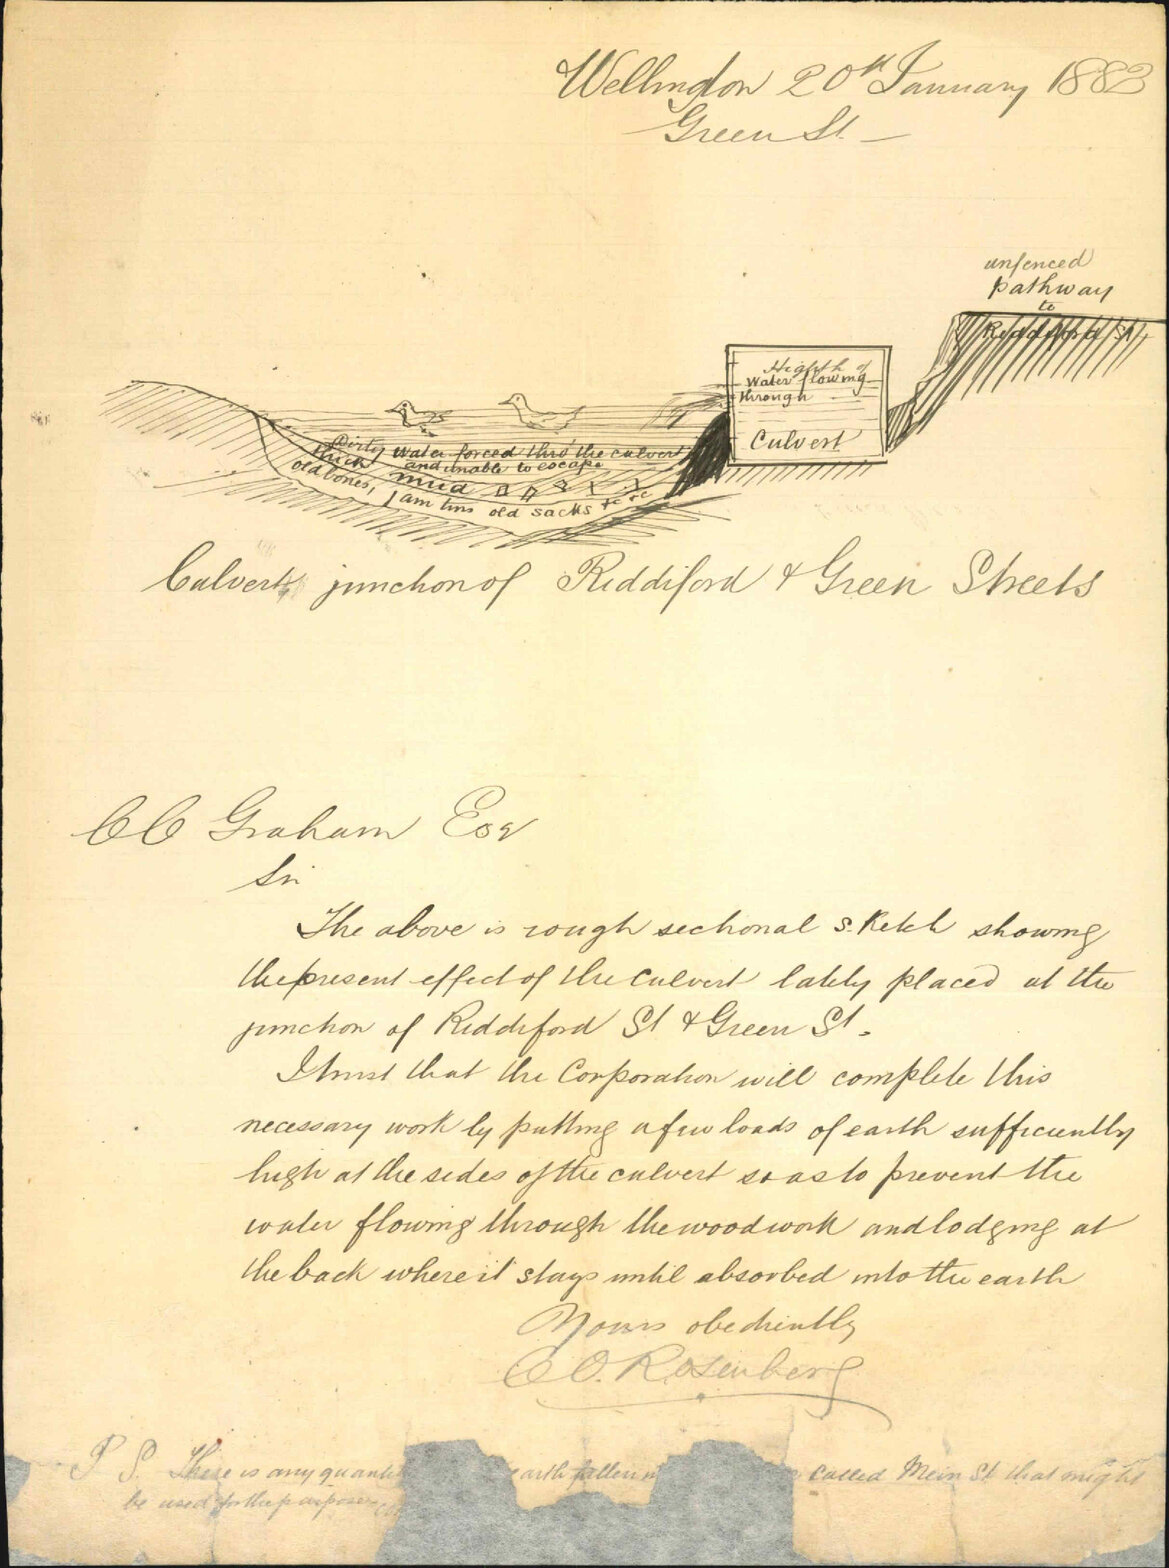 Wellington 20th January 1883
Green St
unfenced
pathway
to
Riddiford St
Highth of
Water flowing
through
Culvert
Dirty water forced thro' the culvert
thick and unable to escape
mud
old bones, jam tins old sacks &c &c
Culvert junction of Riddiford & Green Streets
CC Graham Esq
Sir
The above is rough sectional sketch showing
the present effect of the culvert lately placed at the
junction of Riddiford St & Green St.
I trust that the Corporation will complete this
necessary work by putting a few loads of earth sufficiently
high at the sides of the culvert so as to prevent the
water flowing through the woodwork and lodging at
the back where it stays until absorbed into the earth
Yours obediently
C O. Rosenberg
P S. There is any quanti earth fallen called Mein St that might
be used for the purpose